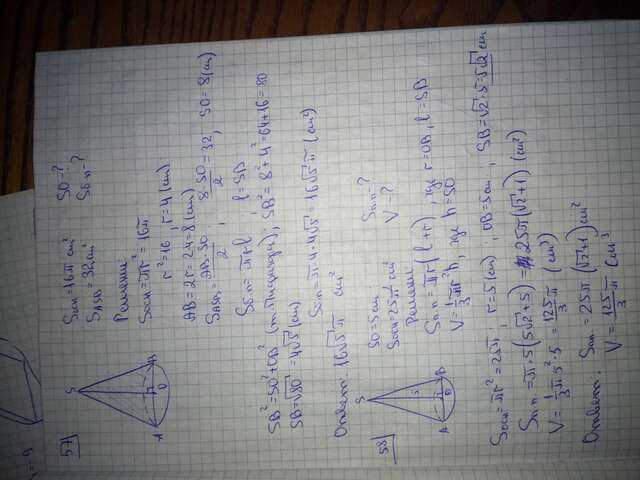 = -9
57)
S
A
O
B
Sосн = 16π см²     SO - ?
S_ASB = 32 см²     Sб.п - ?
Решение:
Sосн = πr² = 16π
r² = 16, r = 4 (см)
AB = 2r = 2·4 = 8 (см)
S_ASB = AB·SO/2, 8·SO/2 = 32, SO = 8 (см)
Sб.п = πrl, l = SB
SB² = SO² + OB² (т. Пифагора); SB² = 8² + 4² = 64 + 16 = 80
SB = √80 = 4√5 (см)
Sб.п = π·4·4√5 = 16√5π (см²)
Ответ: 16√5π см²
58)
S
5
A
O
B
SO = 5 см     Sп.п - ?
Sосн = 25π см²     V - ?
Решение
Sп.п. = πr(l + r), где r = OB, l = SB
V = 1/3 πr²h, где h = SO
Sосн = πr² = 25π, r = 5 (см), OB = 5 см, SB = √2·5 = 5√2 см
Sп.п. = π·5(5√2 + 5) = 25π(√2 + 1) (см²)
V = 1/3 π5²·5 = 125/3 π (см³)
Ответ: Sпп = 25π(√2 + 1) см²
V = 125/3 π см³